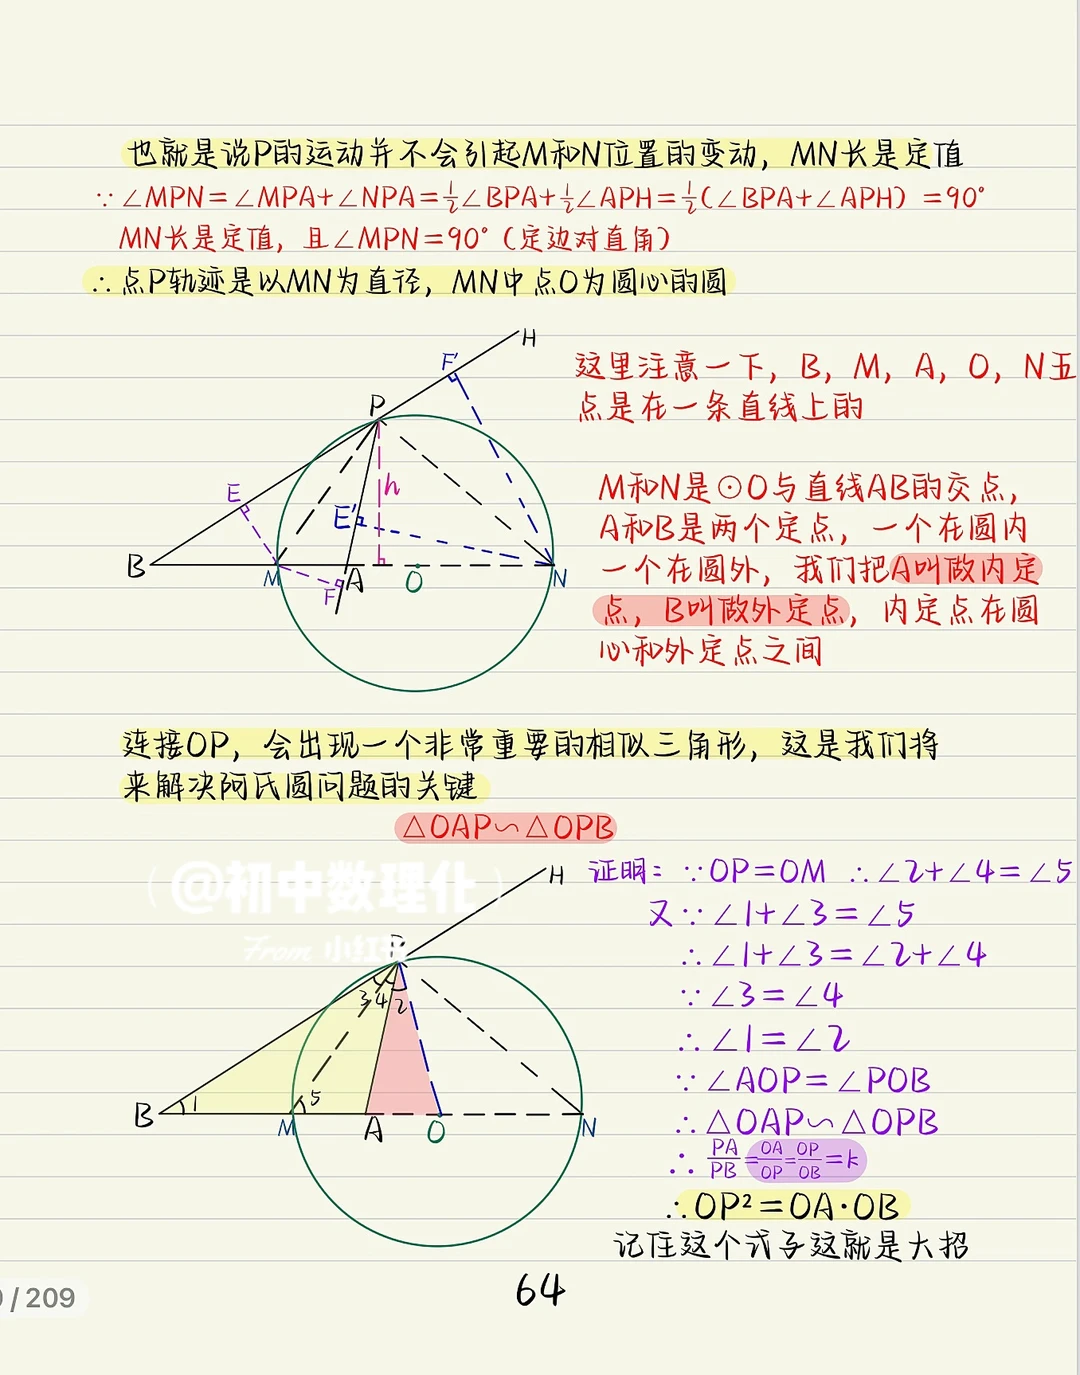 也就是说P的运动并不会引起M和N位置的变动，MN长是定值
∵∠MPN=∠MPA+∠NPA=½∠BPA+½∠APH=½(∠BPA+∠APH)=90°
MN长是定值，且∠MPN=90°(定边对直角)
∴点P轨迹是以MN为直径，MN中点O为圆心的圆
H
F'
P
h
E
E'
B
M
A
O
N
F
这里注意一下，B，M，A，O，N五
点是在一条直线上的
M和N是⊙O与直线AB的交点，
A和B是两个定点，一个在圆内
一个在圆外，我们把A叫做内定
点，B叫做外定点，内定点在圆
心和外定点之间
连接OP，会出现一个非常重要的相似三角形，这是我们将
来解决阿氏圆问题的关键
△OAP∽△OPB
(@初中数理化)
From 小红书
H
P
3 4 2
1
5
B
M
A
O
N
证明：∵OP=OM ∴∠2+∠4=∠5
又∵∠1+∠3=∠5
∴∠1+∠3=∠2+∠4
∵∠3=∠4
∴∠1=∠2
∵∠AOP=∠POB
∴△OAP∽△OPB
∴PA/PB=OA/OP=OP/OB=k
∴OP²=OA·OB
记住这个式子这就是大招
64
/209